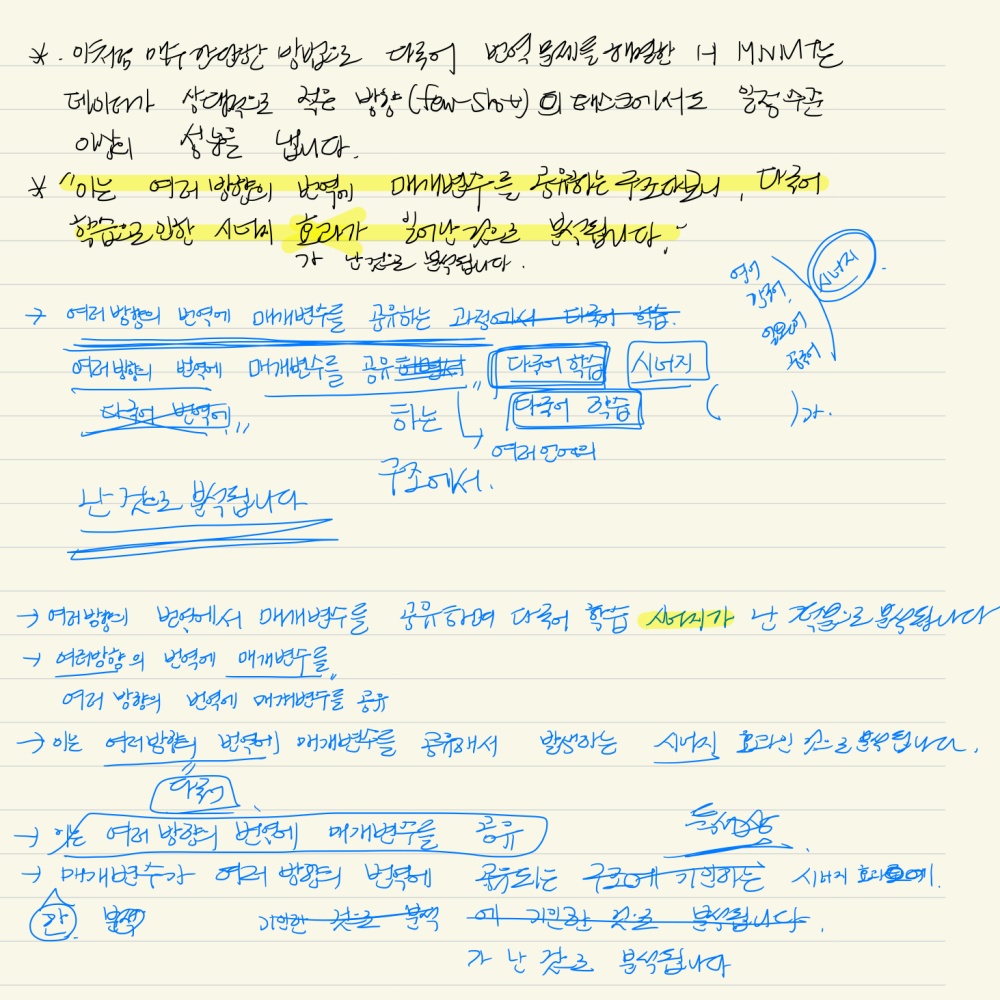 * . 이처럼 매우 간단한 방법으로 다국어 번역 문제를 해결한 MNMT는
데이터가 상대적으로 적은 방향(few-shot)의 태스크에서도 일정 수준
이상의 성능을 냅니다.
* "이는 여러 방향의 번역에 매개변수를 공유하는 구조다보니, 다국어
학습으로 인한 시너지 효과가 일어난 것으로 분석됩니다."
가 난 것으로 분석됩니다.
영어
시너지
일본어
→ 여러 방향의 번역에 매개변수를 공유하는 과정에서 다국어 학습.
여러 방향의 번역에 매개변수를 공유하면서 " 다국어 학습 시너지
다국어 번역에 " 하는 다국어 학습 ( )가.
여러 언어의
구조에서.
난 것으로 분석됩니다
→ 여러 방향의 번역에서 매개변수를 공유하며 다국어 학습 시너지가 난 적으로 분석됩니다
→ 여러 방향의 번역에 매개변수를 "
여러 방향의 번역에 매개변수를 공유
→ 이는 여러 방향의 번역에 매개변수를 공유해서 발생하는 시너지 효과인 것으로 분석됩니다.
다국어
→ 이는 여러 방향의 번역에 매개변수를 공유
→ 매개변수가 여러 방향의 번역에 공유되는 구조에 기인하는 시너지 효과
간 번역 기인한 것으로 분석 에 기인한 것으로 분석됩니다.
가 난 것으로 분석됩니다